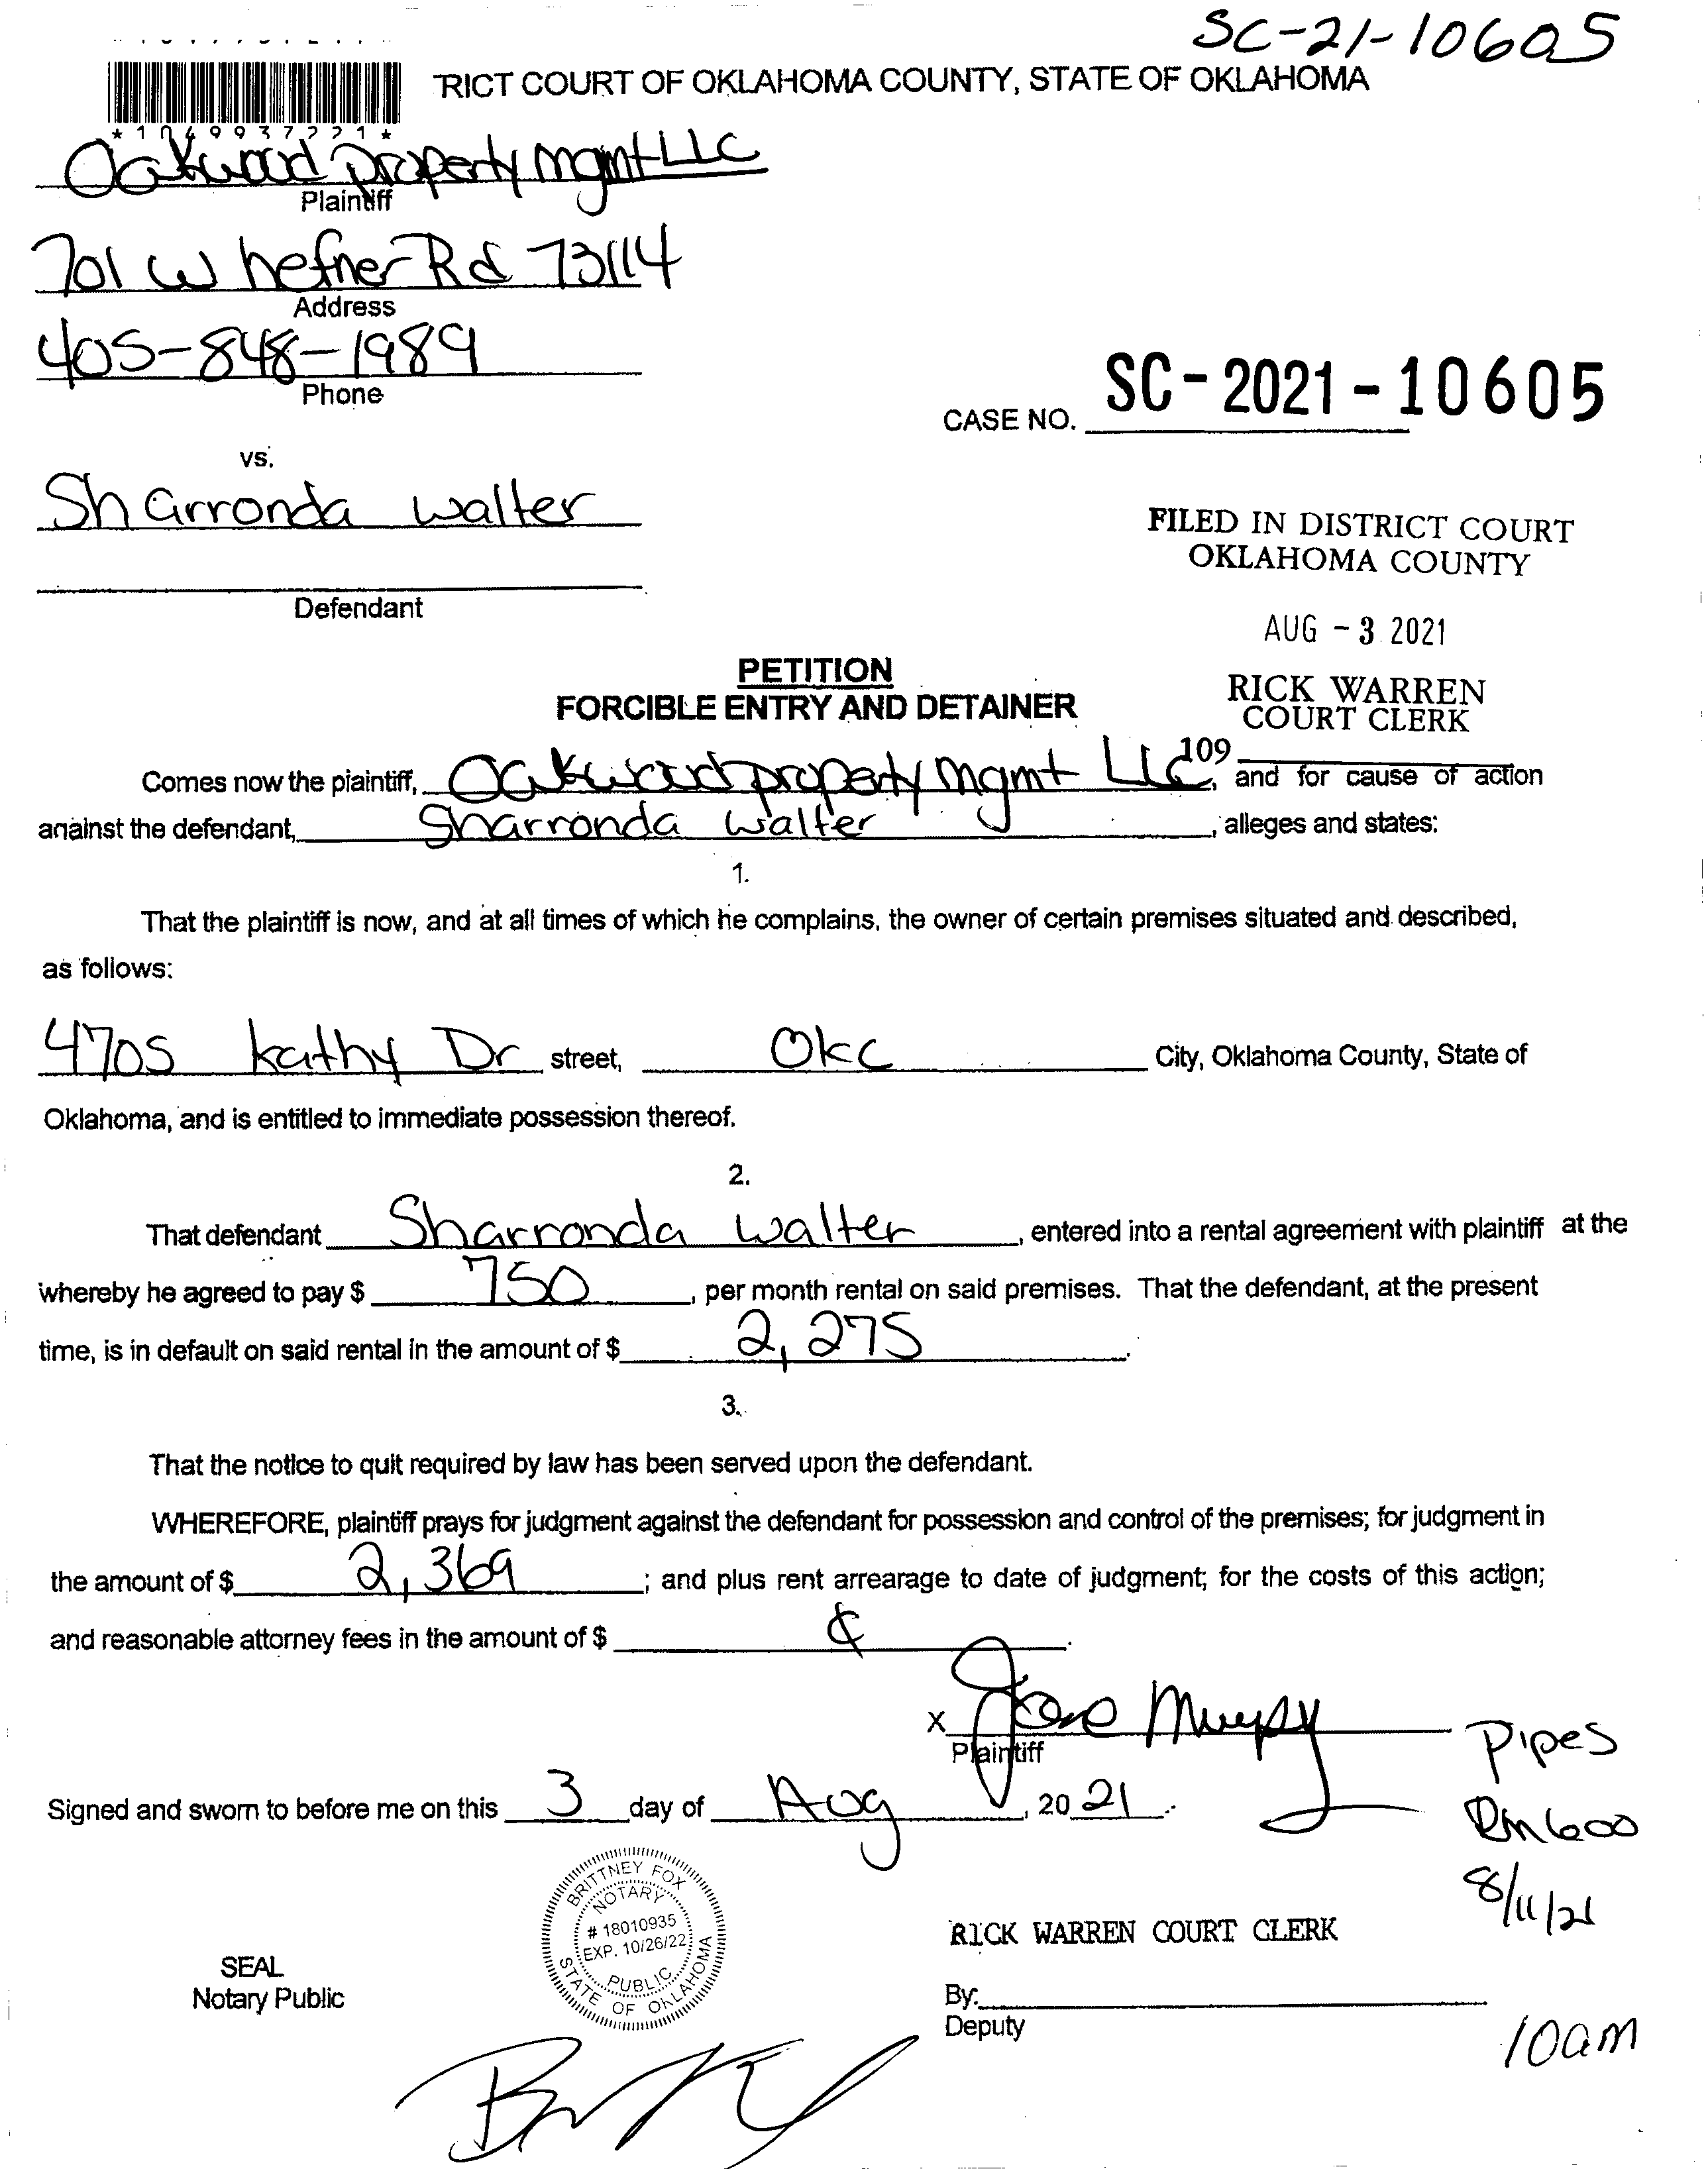 SC-21-10605
RICT COURT OF OKLAHOMA COUNTY, STATE OF OKLAHOMA
*1049937221*
Oakwood property mgmt LLC
Plaintiff
701 W hefner Rd 73114
Address
405-848-1989
Phone
CASE NO. SC-2021-10605
vs.
Sharronda walter
Defendant
FILED IN DISTRICT COURT
OKLAHOMA COUNTY
AUG - 3 2021
RICK WARREN
COURT CLERK
109
PETITION
FORCIBLE ENTRY AND DETAINER
Comes now the plaintiff, Oakwood property mgmt LLC, and for cause of action
against the defendant, Sharronda walter, alleges and states:
1.
That the plaintiff is now, and at all times of which he complains, the owner of certain premises situated and described,
as follows:
4705 kathy Dr street, Okc City, Oklahoma County, State of
Oklahoma, and is entitled to immediate possession thereof.
2.
That defendant Sharronda walter, entered into a rental agreement with plaintiff at the
whereby he agreed to pay $ 750, per month rental on said premises. That the defendant, at the present
time, is in default on said rental in the amount of $ 2,275.
3.
That the notice to quit required by law has been served upon the defendant.
WHEREFORE, plaintiff prays for judgment against the defendant for possession and control of the premises; for judgment in
the amount of $ 2,369; and plus rent arrearage to date of judgment; for the costs of this action;
and reasonable attorney fees in the amount of $ ¢.
X
Plaintiff
Pipes
Signed and sworn to before me on this 3 day of Aug, 2021.
Rm 600
8/11/21
BRITTNEY FOX
NOTARY
# 18010935
EXP. 10/26/22
PUBLIC
STATE OF OKLAHOMA
SEAL
Notary Public
RICK WARREN COURT CLERK
By:
Deputy
10am